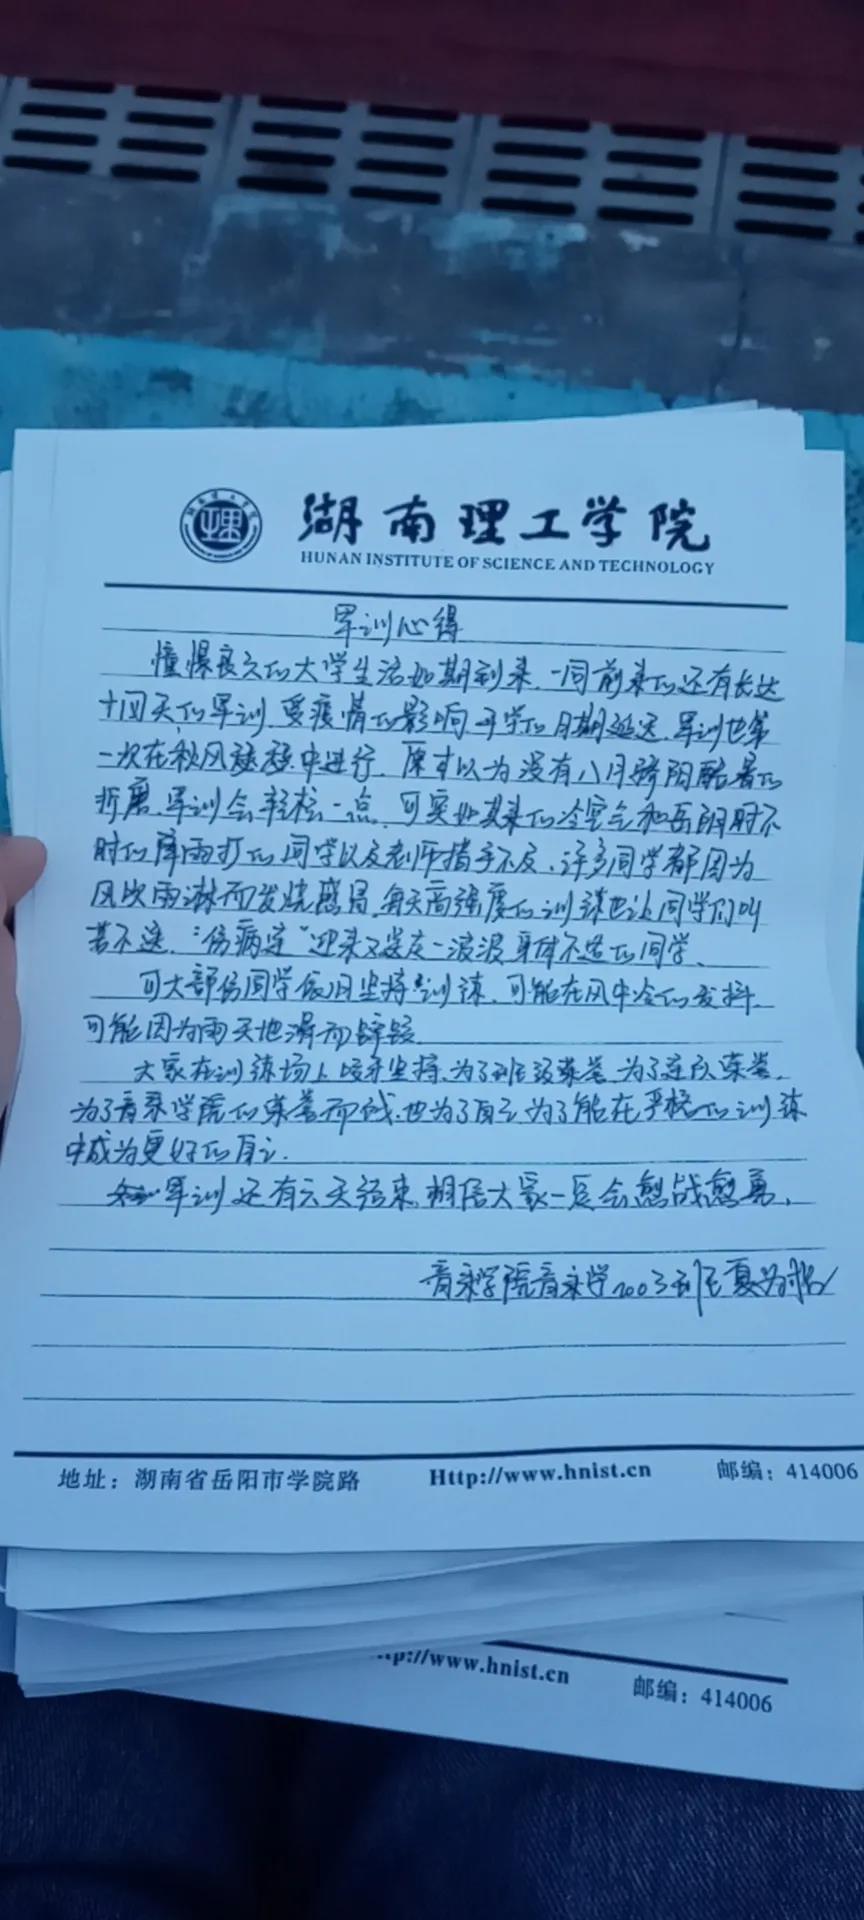 湖南理工学院
HUNAN INSTITUTE OF SCIENCE AND TECHNOLOGY
军训心得
憧憬良久的大学生活如期到来,一同前来的还有长达
十四天的军训,受疫情的影响,开学的日期延迟,军训也第
一次在秋风瑟瑟中进行,原本以为没有八月骄阳酷暑的
折磨,军训会轻松一点,可突如其来的冷空气和岳阳时不
时的降雨打的同学以及老师措手不及,许多同学都因为
风吹雨淋而发烧感冒,每天高强度的训练也让同学们叫
苦不迭,“伤病连”迎来又送走一波波身体不适的同学、
可大部份同学依旧坚持训练,可能在风中冷的发抖,
可能因为雨天地滑而
大家在训练场上咬牙坚持,为了班级荣誉,为了连队荣誉,
为了音乐学院的荣誉而战,也为了自己,为了能在严格的训练
中成为更好的自己.
军训还有六天结束,相信大家一定会愈战愈勇,
音乐学院音乐学2003班夏
地址:湖南省岳阳市学院路 Http://www.hnist.cn 邮编:414006
tp://www.hnist.cn 邮编:414006